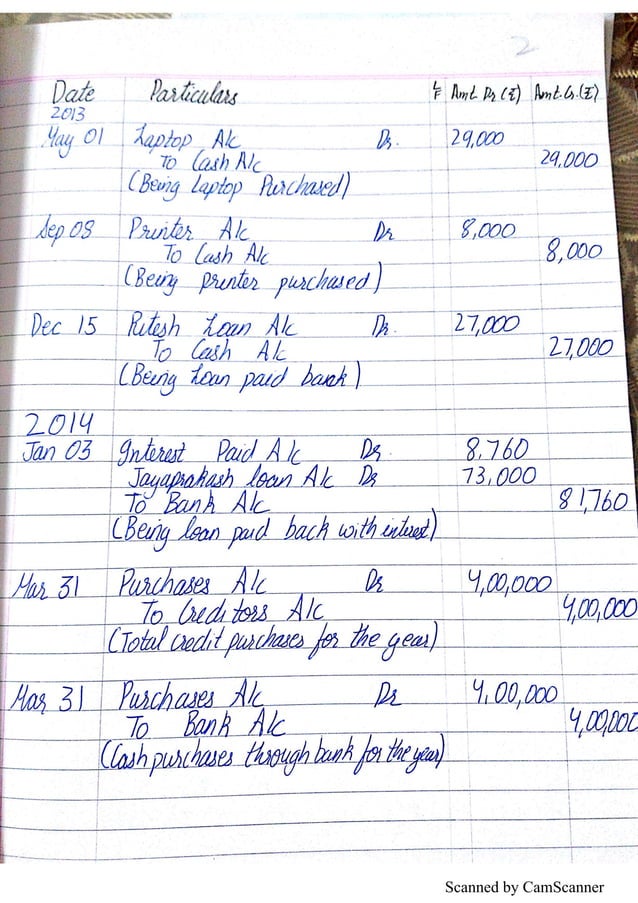 2
Date Particulars LF Amt. Dr (₹) Amt. Cr. (₹)
2013
May 01 Laptop A/c Dr. 29,000
To Cash A/c 29,000
(Being Laptop Purchased)
Sep 08 Printer A/c Dr 8,000
To Cash A/c 8,000
(Being printer purchased)
Dec 15 Ritesh Loan A/c Dr. 27,000
To Cash A/c 27,000
(Being Loan paid back)
2014
Jan 03 Interest Paid A/c Dr. 8,760
Jayaprakash loan A/c Dr 73,000
To Bank A/c 81,760
(Being loan paid back with interest)
Mar 31 Purchases A/c Dr 4,00,000
To Creditors A/c 4,00,000
(Total credit purchases for the year)
Mar 31 Purchases A/c Dr 4,00,000
To Bank A/c 4,00,000
(Cash purchases through bank for the year)
Scanned by CamScanner